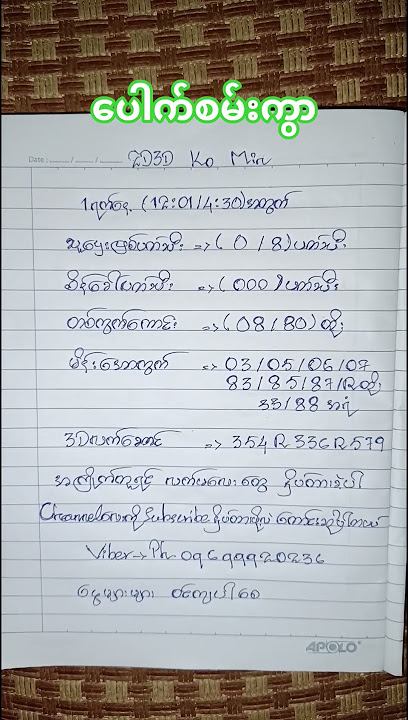 ပေါက်စမ်းကွာ
Date : ...... / ...... / ......
2D3D Ko Min
1ရက်နေ့ (12:01/4:30)အတွက်
သူဌေးဖြစ်ပတ်သီး => ( 0 / 8 ) ပတ်သီး
=> ( 000 ) ပတ်သီး
တစ်ကွက်ကောင်း => ( 08 / 80 ) ထိုး
မိန်းအောကွက် => 03 / 05 / 06 / 07
83 / 85 / 87 / R ထိုး
33 / 88 အရံ
3D လက်ဆောင် => 354 R 336 R 579
အကြိုက်တူရင် လက်မလေးတွေ နှိပ်ထားခဲ့ပါ
Channel လေးကို Subscribe နှိပ်ထားဖို့လဲ တောင်းဆိုပါတယ်
Viber -> Ph 09699920236
ငွေများများ ဝင်ကြပါစေ
APOLO